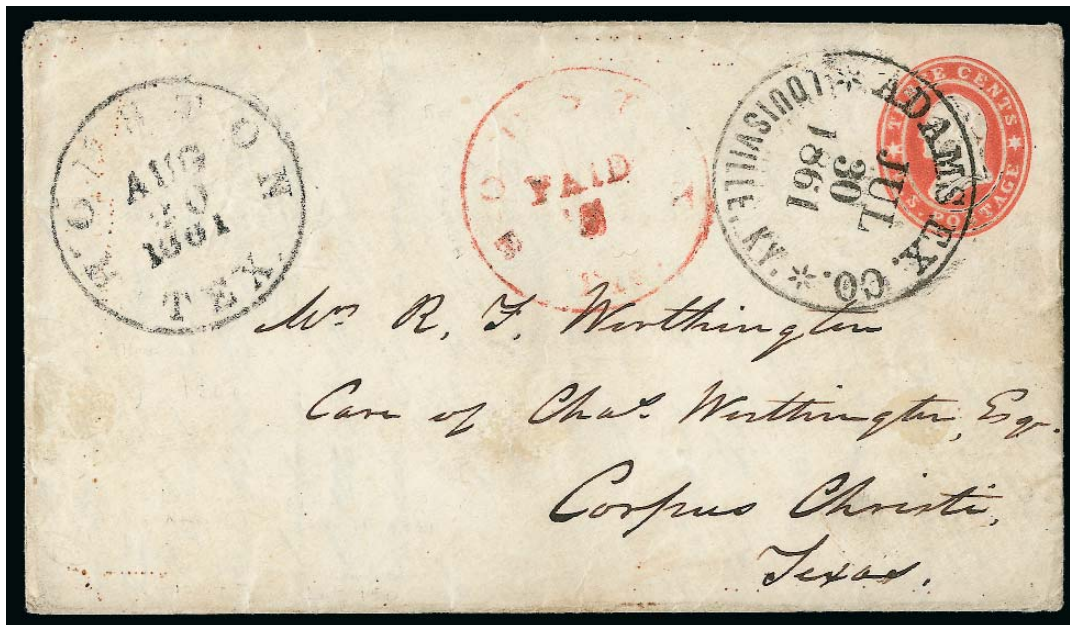 HOUSTON
AUG
20
1861
TEX.
PAID
ADAMS EX. CO.
JUL
30
1861
* LOUISVILLE, KY. *
THREE CENTS
U.S. POSTAGE
Mrs R. F. Worthington
Care of Chas. Worthington, Esqr.
Corpus Christi,
Texas.